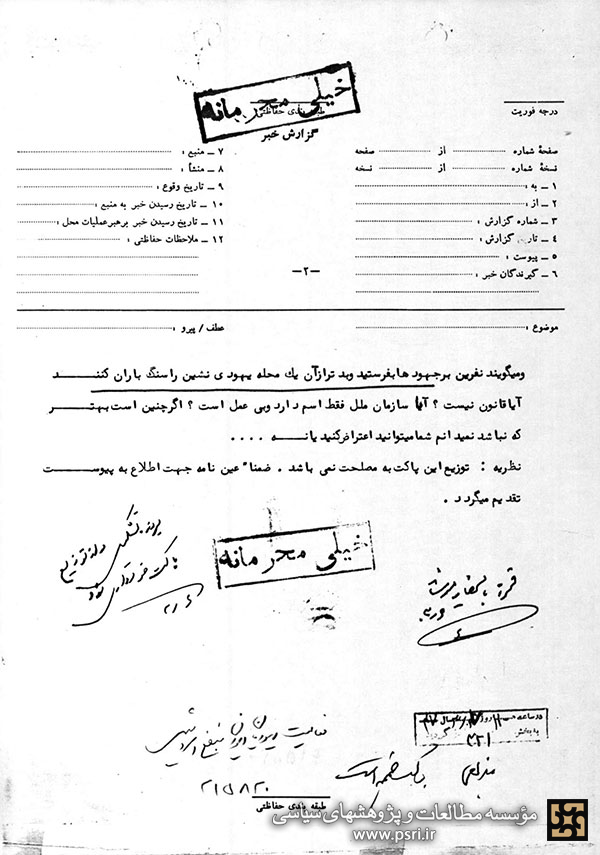 خیلی محرمانه
طبقه بندی حفاظتی
گزارش خبر
درجه فوریت
صفحهٔ شماره از صفحه
نسخهٔ شماره از نسخه
۱ ـ به :
۲ ـ از :
۳ ـ شماره گزارش :
۴ ـ تاریخ گزارش :
۵ ـ پیوست :
۶ ـ گیرندگان خبر :
۷ ـ منبع :
۸ ـ منشأ :
۹ ـ تاریخ وقوع :
۱۰ ـ تاریخ رسیدن خبر به منبع :
۱۱ ـ تاریخ رسیدن خبر برهبرعملیات محل :
۱۲ ـ ملاحظات حفاظتی :
ـ۲ـ
موضوع :
عطف / پیرو :
ومیگویند نفرین برجهود هابفرستید وبد ترازآن یك محله یهودی نشین راسنگ باران کننــــد
آیاقانون نیست ؟ آیا سازمان ملل فقط اسم دارد وبی عمل است ؟ اگرچنین است بهتــــر
که نباشد نمیدانم شمامیتوانید اعتراض کنید یانـــه ....
نظریه : توزیع این پاکت به مصلحت نمی باشد . ضمنا" عین نامه جهت اطلاع به پیوســـت
تقدیم میگردد .
خیلی محرمانه
در ساعه
۳۲۱
فعالیت یهودیان ایران بنفع اسرائیل
پاکت ضمیمه است
۲۱۵۸۲۰
طبقه بندی حفاظتی
مؤسسه مطالعات و پژوهشهای سیاسی
www.psri.ir